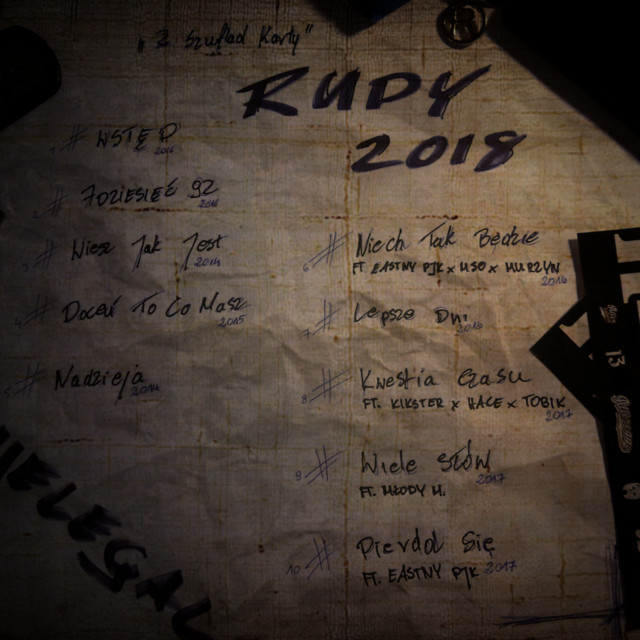 "Z Szuflad Karty"
RUDY
2018
# WSTĘP
# 7DZIESIEĆ 92
2016
3 # Wiesz Jak Jest
2014
4 # Doceń To Co Masz
2015
5 # Nadzieja
2014
6 # Niech Tak Będzie
FT. EASTNY PJK x USO x MURZYN
2016
7 # Lepsze Dni
2016
8 # Kwestia Czasu
FT. KIKSTER x HACE x TOBIK
2017
9 # Wiele Słów
2017
FT. MŁODY M.
10 # Pierdol Się
FT. EASTNY PJK 2017
NIELEGAL
13